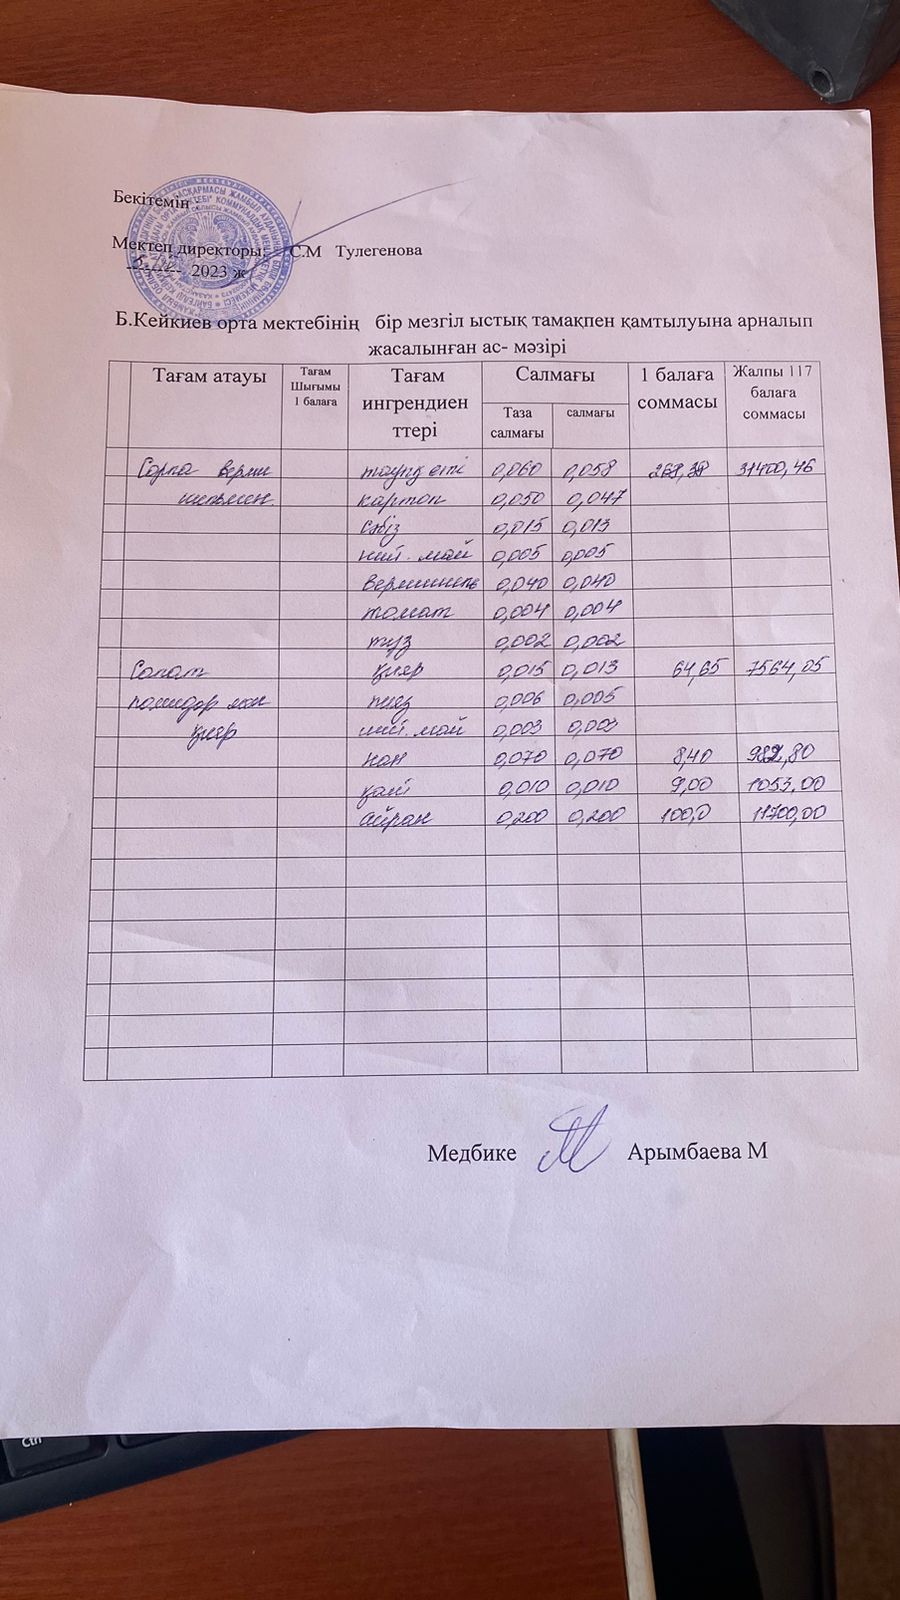 Бекітемін
Мектеп директоры: С.М Тулегенова
--------- 2023 ж
Б.Кейкиев орта мектебінің бір мезгіл ыстық тамақпен қамтылуына арналып
жасалынған ас- мәзірі
Тағам атауы Тағам Шығымы 1 балаға Тағам ингрендиен ттері Салмағы 1 балаға соммасы Жалпы 117 балаға соммасы
Таза салмағы салмағы
Сорпа верми тауық еті 0,060 0,058 268,38 31400,46
шельмен. картоп 0,050 0,047
сәбіз 0,015 0,013
май 0,005 0,005
вермишель 0,040 0,040
томат 0,004 0,004
тұз 0,002 0,002
Салат қияр 0,015 0,013 64,65 7564,05
помидор мен пияз 0,006 0,005
қияр май 0,003 0,003
нан 0,070 0,070 8,40 982,80
0,010 0,010 9,00 1053,00
айран 0,200 0,200 100,0 11700,00
Медбике Арымбаева М
Ctrl